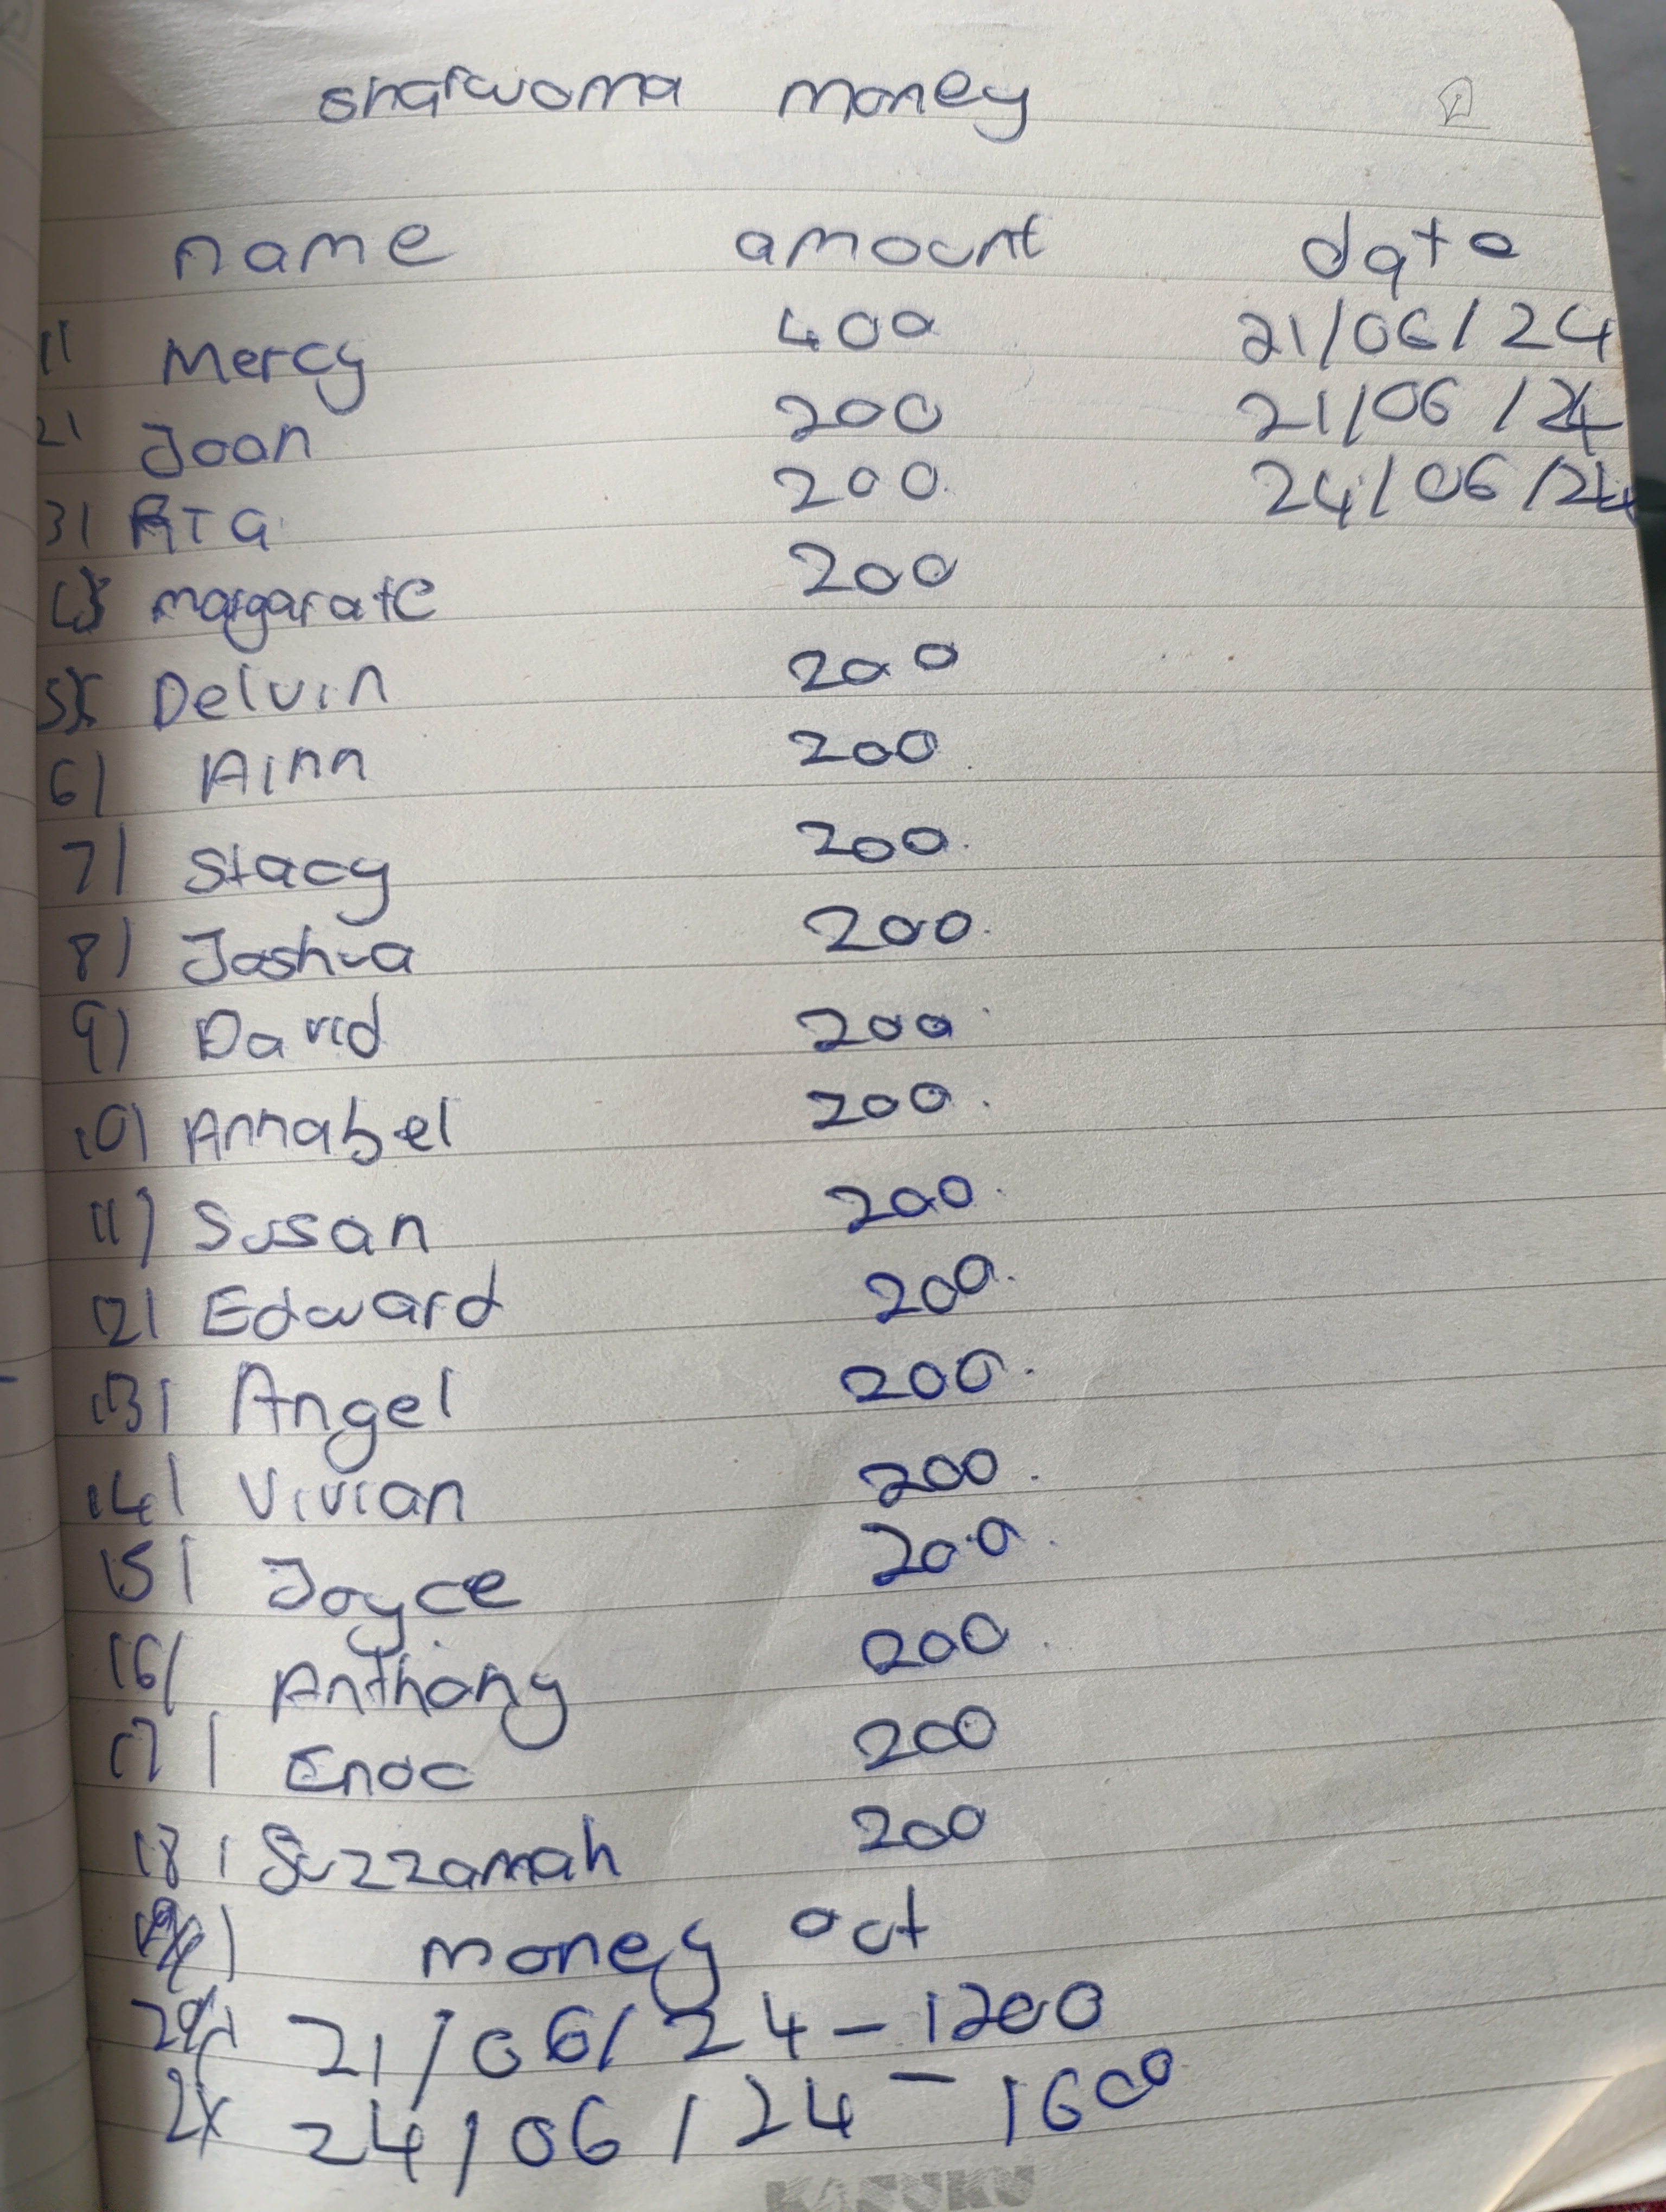 sharwoma money
name amount date
1) Mercy 400 21/06/24
2) Joan 200 21/06/24
3) RTA 200 24/06/24
margarate 200
5) Delvin 200
6) Ainn 200
7) Stacy 200
8) Joshua 200
9) David 200
10) Annabel 200
11) Susan 200
12) Edward 200
13) Angel 200
14) Vivian 200
15) Joyce 200
16) Anthony 200
17) Enoc 200
18) Suzzamah 200
money out
21/06/24 - 1200
24/06/24 - 1600
KASUKU